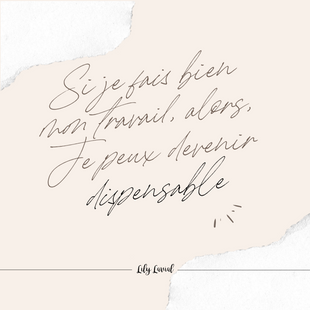 Si je fais bien
mon travail, alors,
Je peux devenir
dispensable
Lily Laval